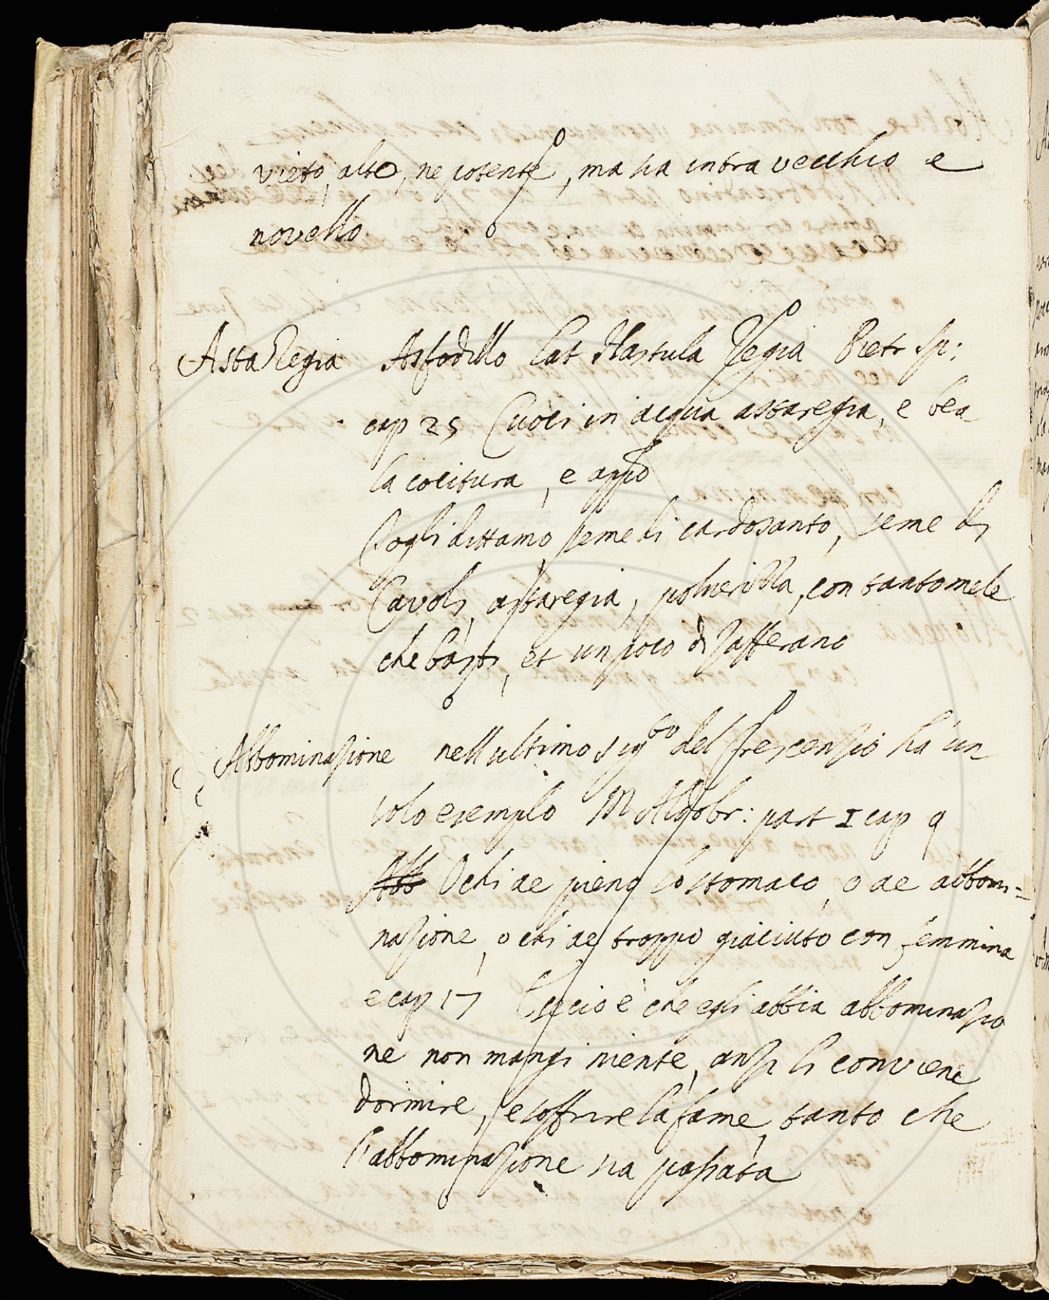 vieto, alto, ne potente, ma sia intra vecchio e
novello
Asta Regia Asfodillo Lat Hastula Regia Pietr sp:
cap 25 Cuoci in acqua astaregia, e bea
la cocitura, e appo
Togli dittamo, seme di cardosanto, seme di
Cavoli, astaregia, polverizza, con tanto mele
che basti, et un poco di Zafferano
Abbominazione nell ultimo sig.to del Crescenzio ha un
solo esempio M Aldobr: part I cap 9
O chi ae pieno lo stomaco, o ae abbomi=
nazione, o chi ae troppo giaciuto con femmina
e cap 17 E se cio è che egli abbia abbominazio
ne non mangi niente, anzi li conviene
dormire, e soffrire la fame, tanto che
l'abbominazione sia passata